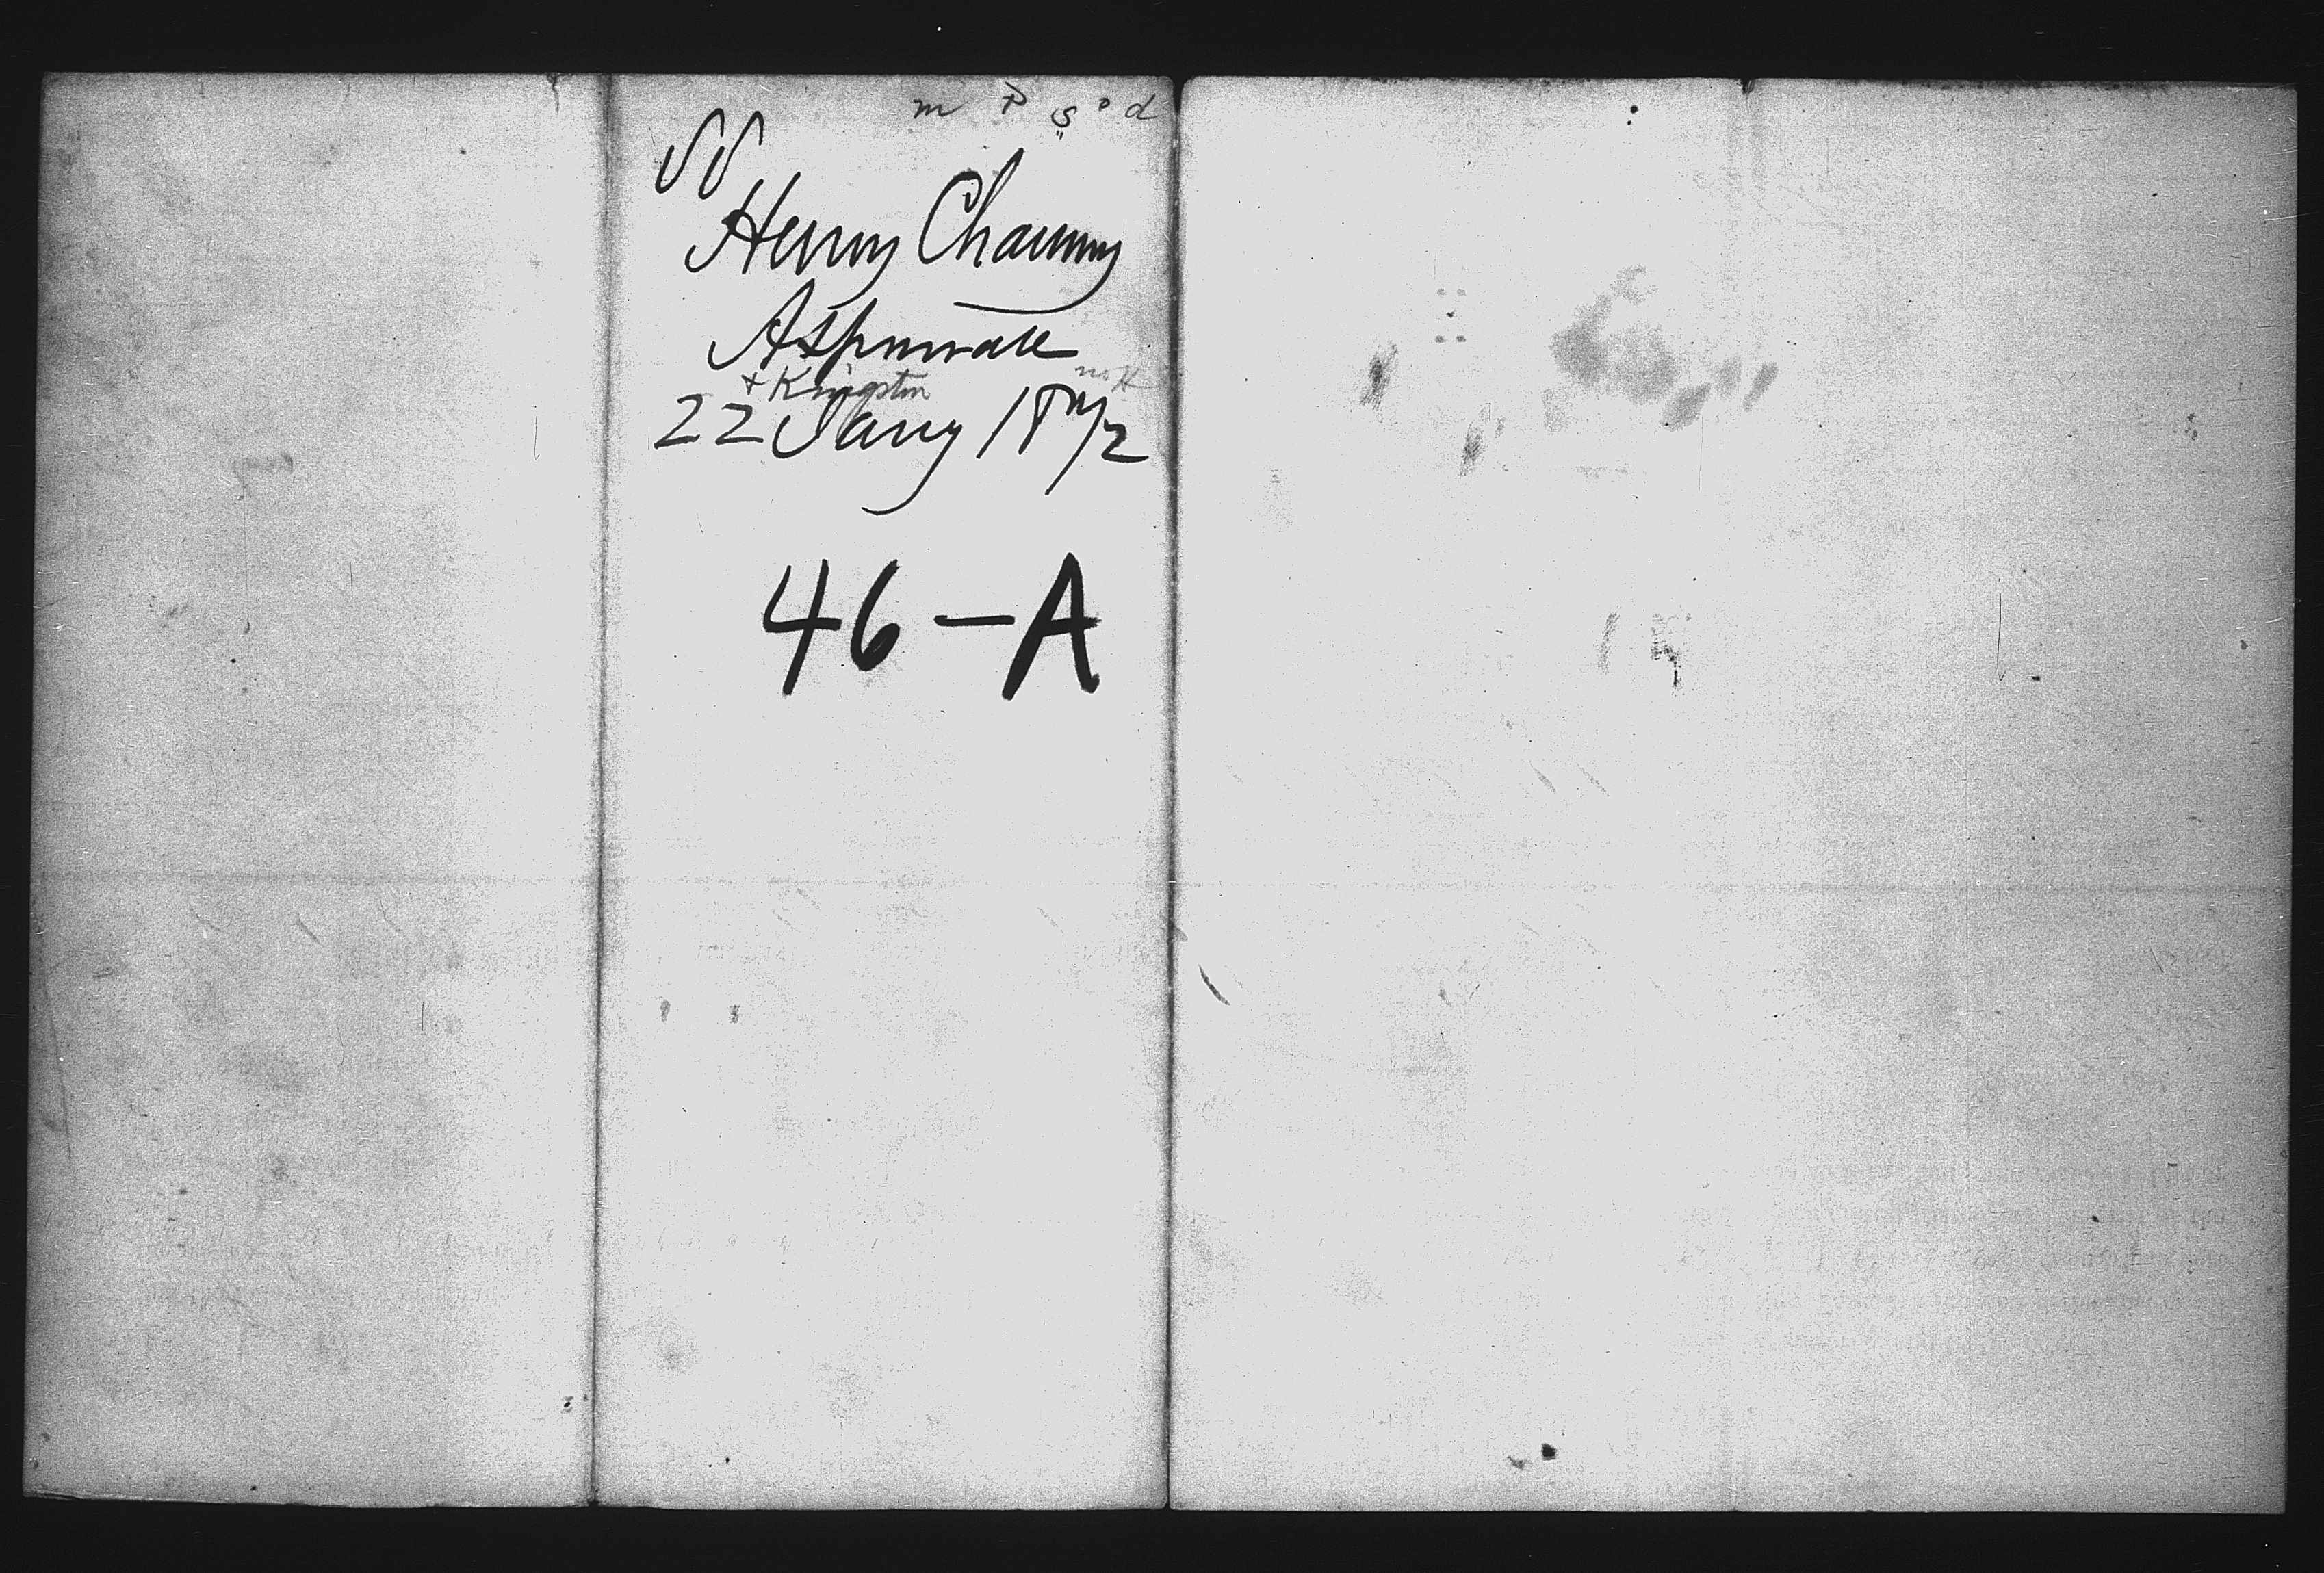 m P s o d
SS
Henry Chauncey
Aspinwall
+ Kingston
22 Jany 1872
46-A